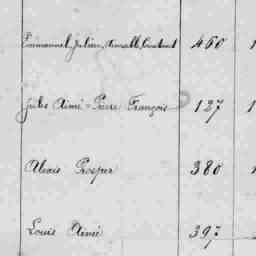 Emmanuel, Julien, Armall, Constant 460
Jules Aimé-Pierre François 127
Alexis Prosper 380
Louis Aimé 397